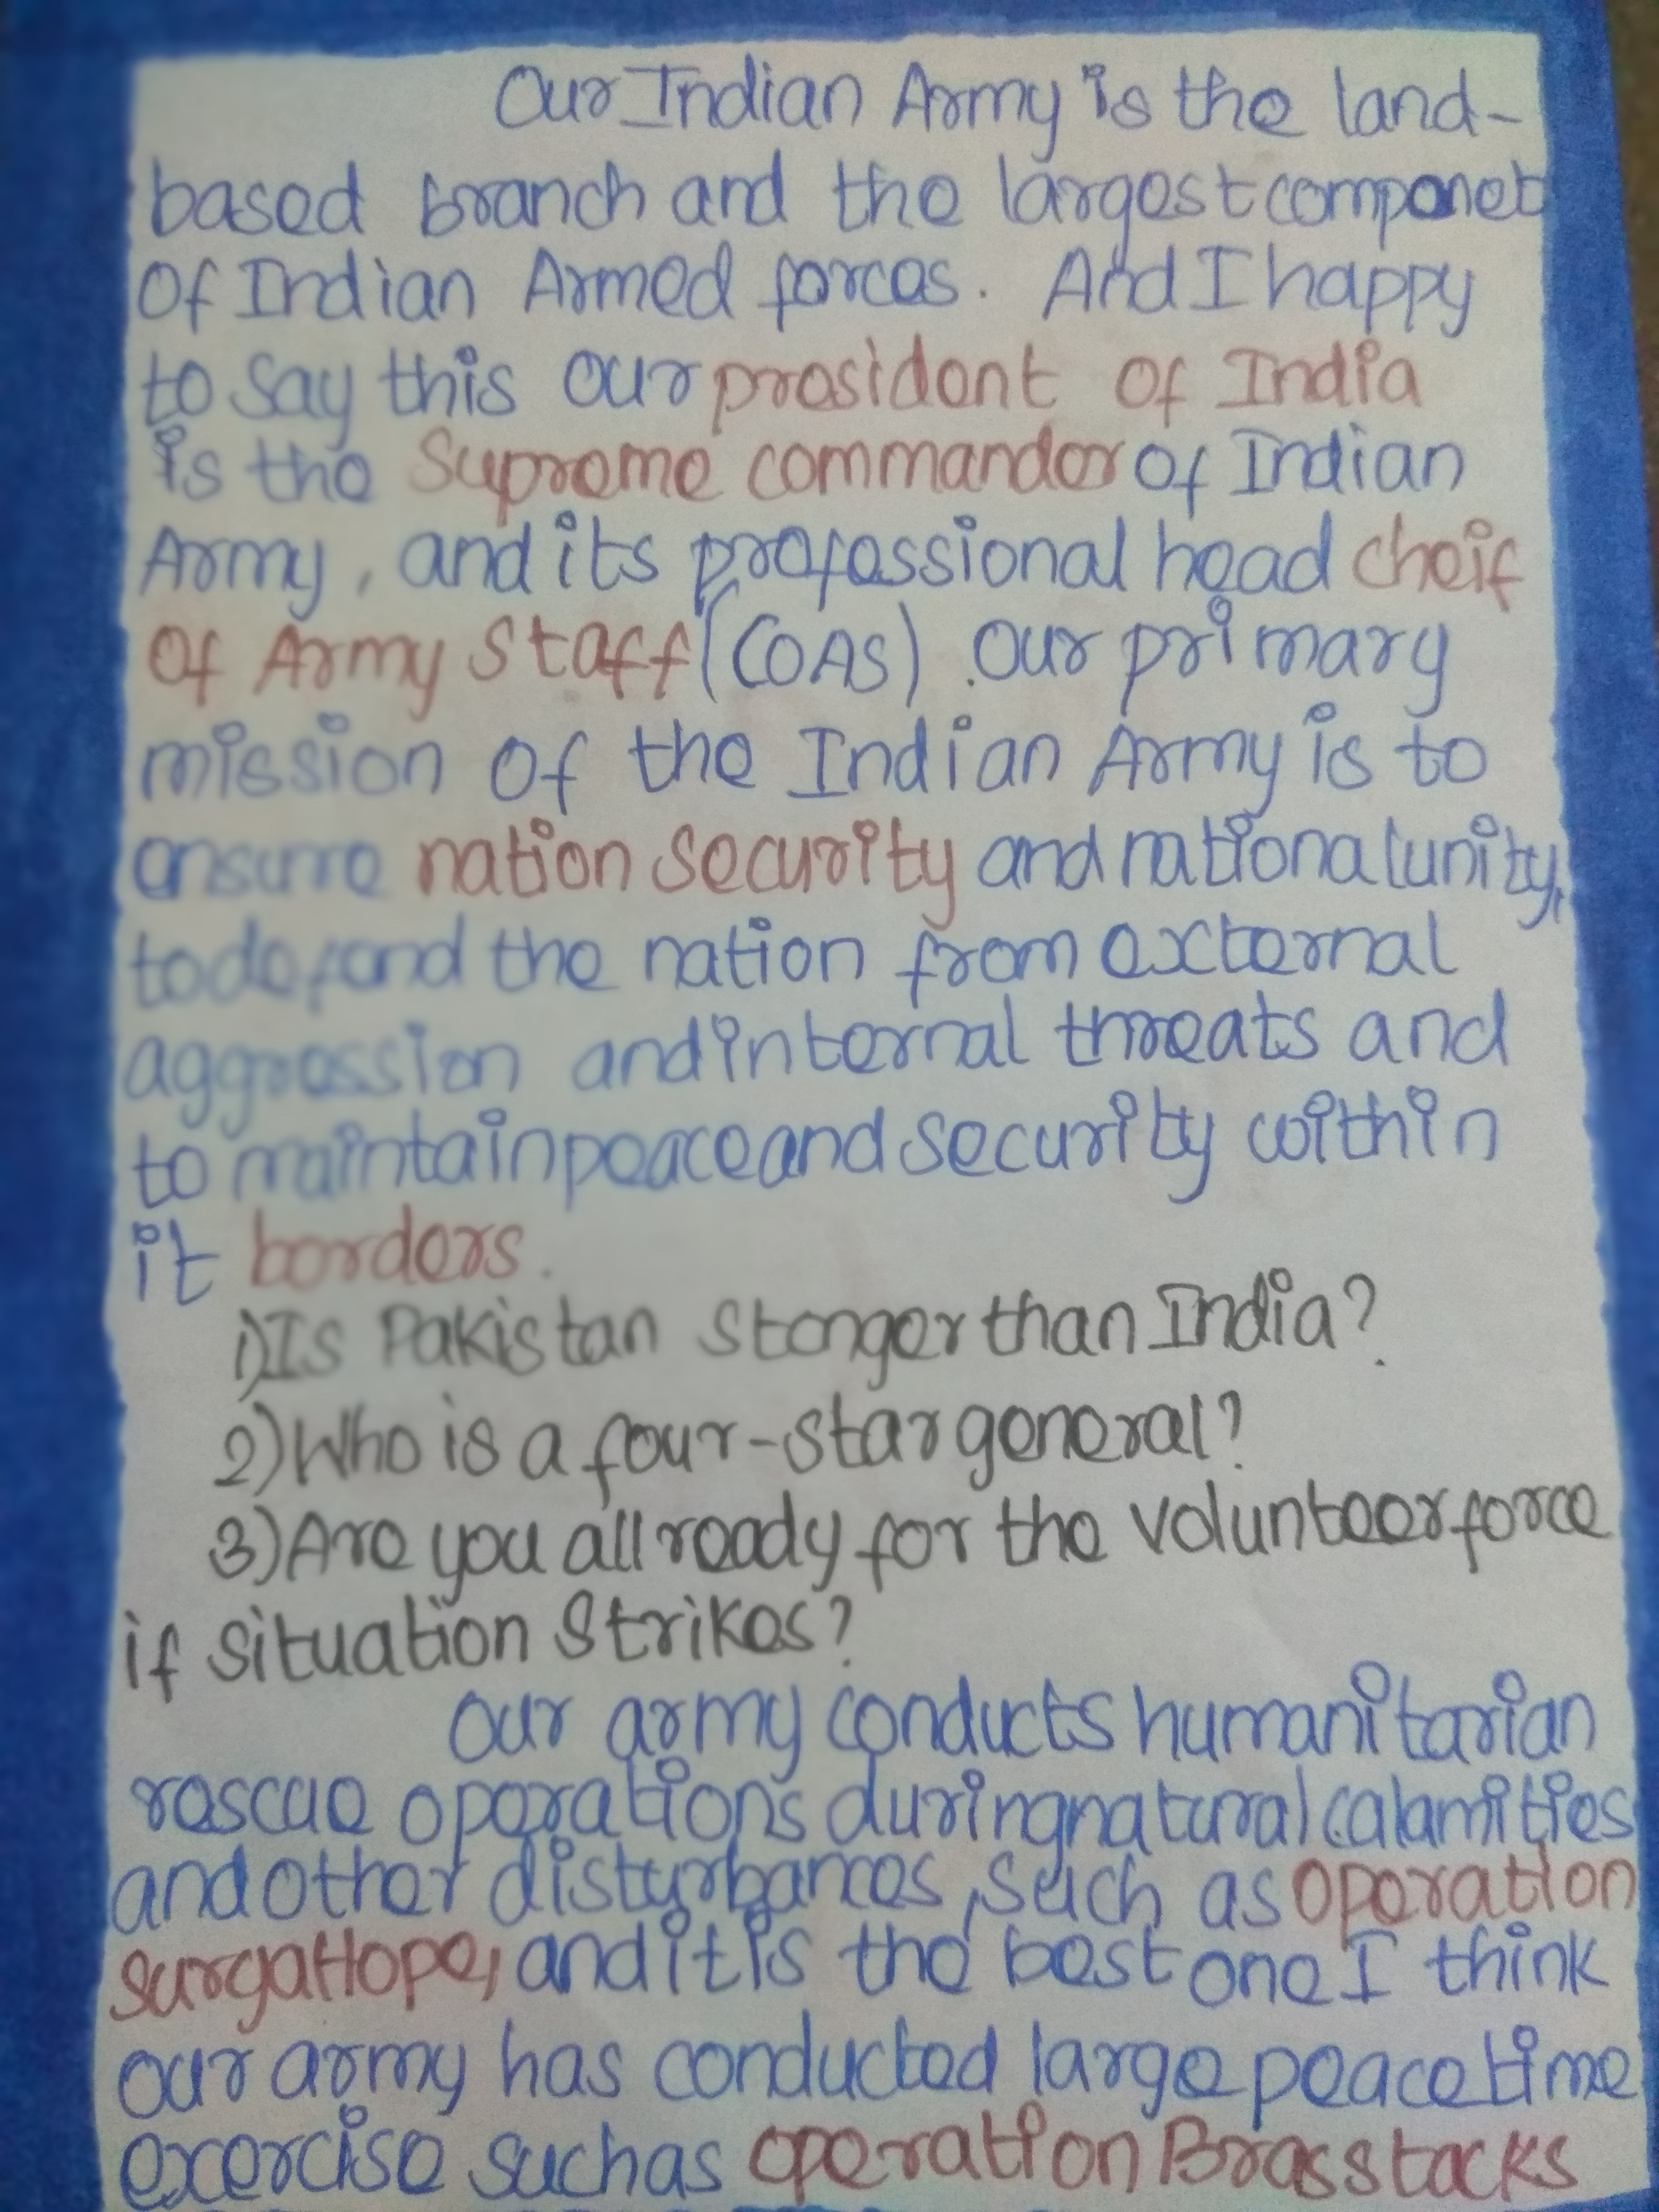 Our Indian Army is the land-
based branch and the largest componet
Of Indian Armed forces. And I happy
to say this our president of India
is the Supreme commander of Indian
Army, and its professional head cheif
Of Army Staff (COAS). Our primary
mission of the Indian Army is to
ensure nation security and national unity,
to defend the nation from external
aggression and internal threats and
to maintain peace and security within
it borders.
1) Is Pakistan Stonger than India?
2) Who is a four-star general?
3) Are you all ready for the volunteer force
if situation Strikes?
Our army conducts humanitarian
rescue operations during natural calamities
and other disturbances, such as operation
surya Hope, and it is the best one I think
our army has conducted large peace time
exercise such as operation Brasstacks